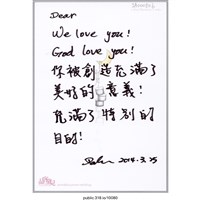 Dear
We love you!
God love you!
你被創造充滿了
美好的意義!
充滿了特別的
目的!
2014.3.25
public 316 is/10080